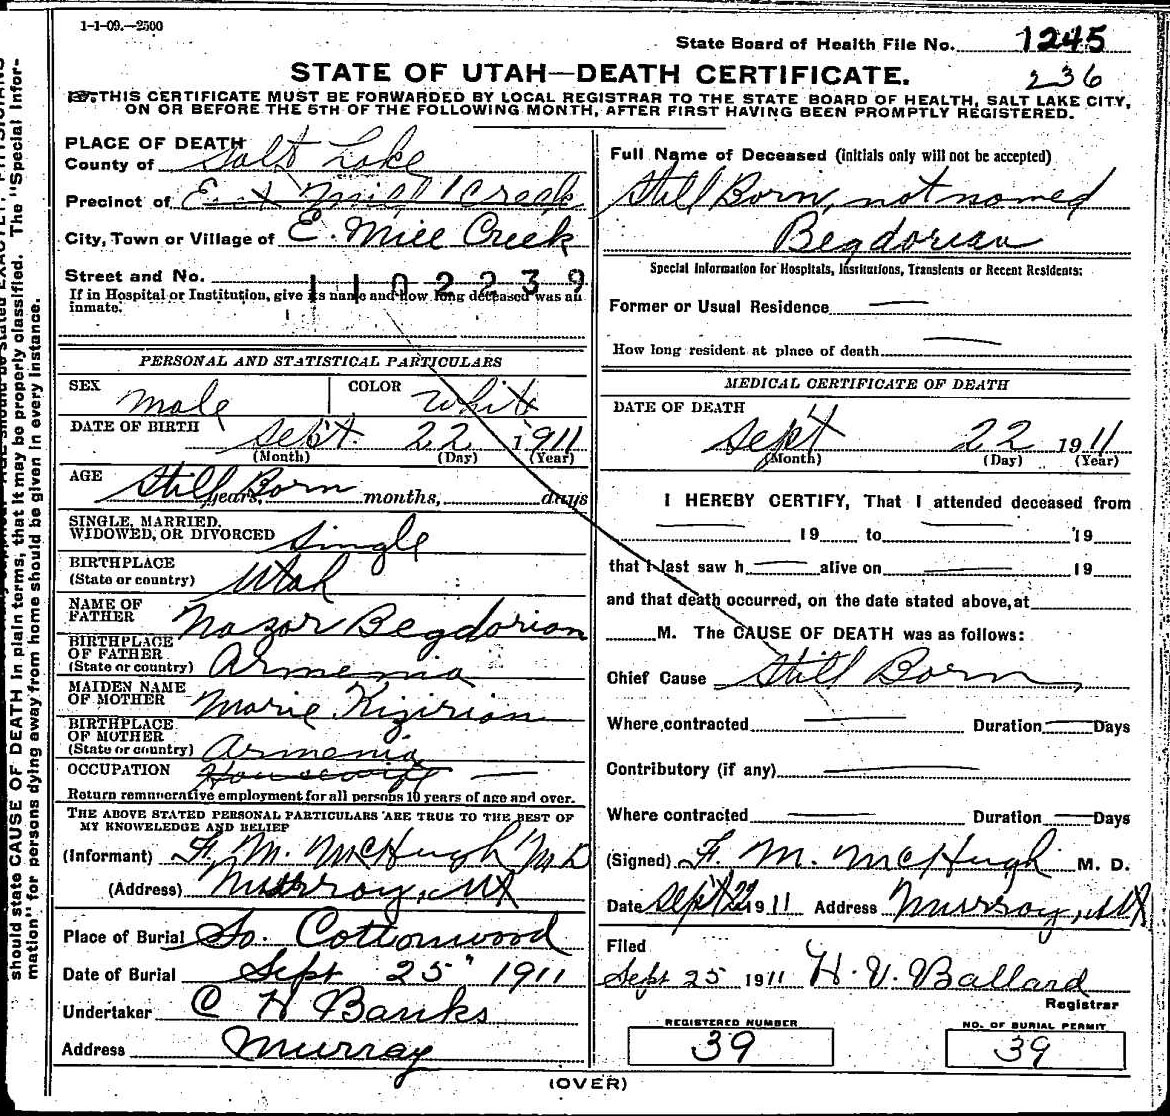 1-1-09.—2500
State Board of Health File No. 1245
236
STATE OF UTAH—DEATH CERTIFICATE.
THIS CERTIFICATE MUST BE FORWARDED BY LOCAL REGISTRAR TO THE STATE BOARD OF HEALTH, SALT LAKE CITY,
ON OR BEFORE THE 5TH OF THE FOLLOWING MONTH, AFTER FIRST HAVING BEEN PROMPTLY REGISTERED.
PLACE OF DEATH
County of Salt Lake
Precinct of East Mill Creek
City, Town or Village of E. Mill Creek
Street and No. 1102239
If in Hospital or Institution, give its name and how long deceased was an
inmate.
PERSONAL AND STATISTICAL PARTICULARS
SEX male COLOR White
DATE OF BIRTH Sept. 22 1911
(Month) (Day) (Year)
AGE Still Born years, months, days
SINGLE, MARRIED,
WIDOWED, OR DIVORCED Single
BIRTHPLACE
(State or country) Utah
NAME OF
FATHER Nazor Begdorian
BIRTHPLACE
OF FATHER
(State or country) Armenia
MAIDEN NAME
OF MOTHER Marie Kizirian
BIRTHPLACE
OF MOTHER
(State or country) Armenia
OCCUPATION Housewife —
Return remunerative employment for all persons 10 years of age and over.
THE ABOVE STATED PERSONAL PARTICULARS ARE TRUE TO THE BEST OF
MY KNOWELEDGE AND BELIEF
(Informant) F. M. McHugh MD
(Address) Murray, Ut
Place of Burial So. Cottonwood
Date of Burial Sept 25" 1911
Undertaker C H Banks
Address Murray
Full Name of Deceased (initials only will not be accepted)
Still Born, not named
Begdorian
Special Information for Hospitals, Institutions, Transients or Recent Residents:
Former or Usual Residence —
How long resident at place of death —
MEDICAL CERTIFICATE OF DEATH
DATE OF DEATH
Sept 22 1911
(Month) (Day) (Year)
I HEREBY CERTIFY, That I attended deceased from
— 19 to — 19
that I last saw h — alive on — 19
and that death occurred, on the date stated above, at
M. The CAUSE OF DEATH was as follows:
Chief Cause Still Born
Where contracted — Duration — Days
Contributory (if any) —
Where contracted — Duration — Days
(Signed) F. M. McHugh M. D.
Date Sept 22 1911 Address Murray, Ut
Filed
Sept 25 1911 H. V. Ballard
Registrar
REGISTERED NUMBER
39
NO. OF BURIAL PERMIT
39
(OVER)
should state CAUSE OF DEATH in plain terms, that it may be properly classified. The "Special Infor-
mation" for persons dying away from home should be given in every instance.